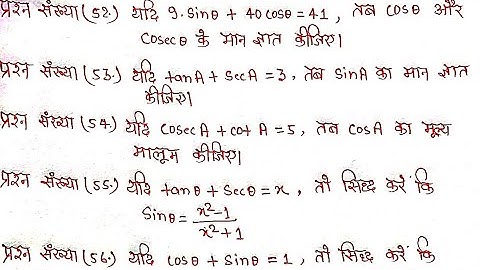 प्रश्न संख्या (52.) यदि 9.sinθ + 40 cosθ = 41, तब cosθ और
cosecθ के मान ज्ञात कीजिए।
प्रश्न संख्या (53.) यदि tanA + secA = 3, तब sinA का मान ज्ञात
कीजिए।
प्रश्न संख्या (54.) यदि cosecA + cotA = 5, तब cosA का मूल्य
मालूम कीजिए।
प्रश्न संख्या (55.) यदि tanθ + secθ = x, तो सिद्ध करें कि
sinθ = x²-1 / x²+1
प्रश्न संख्या (56.) यदि cosθ + sinθ = 1, तो सिद्ध करें कि